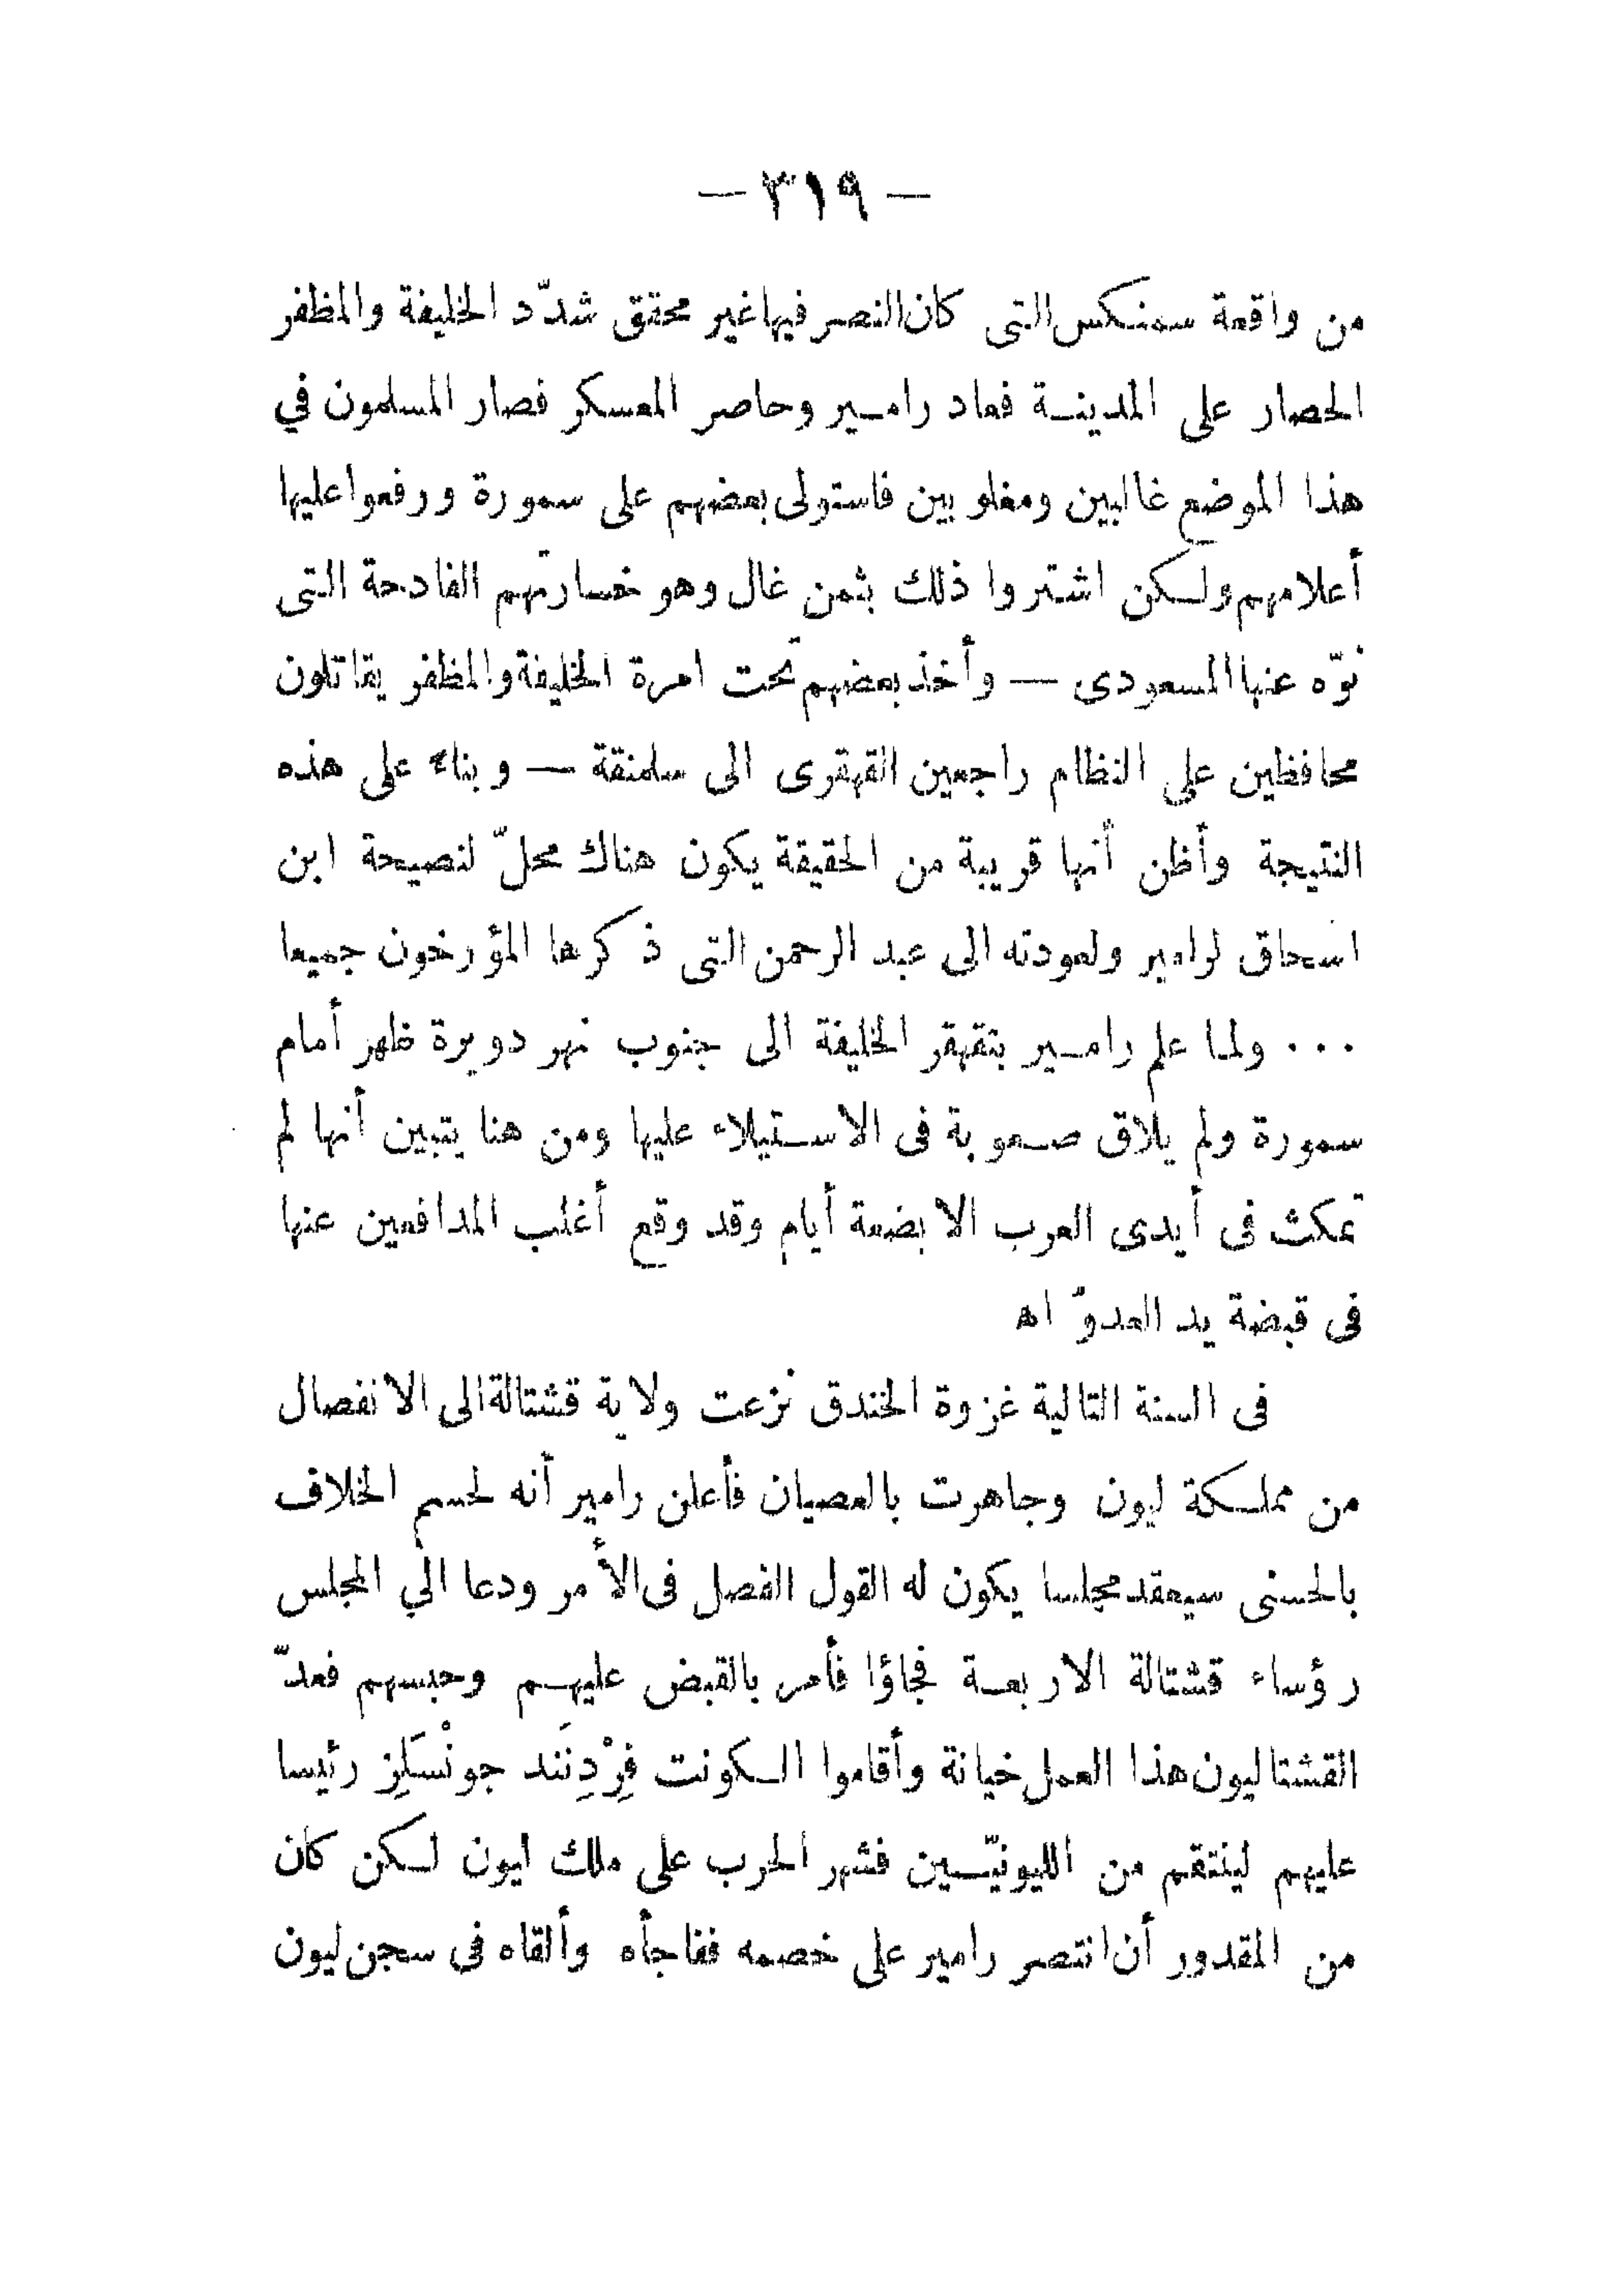 — ٣١٩ —
من واقعة سمنكس التى كان النصر فيها غير محقق شدّد الخليفة والمظفر
الحصار على المدينة فعاد رامير وحاصر المعسكر فصار المسلمون في
هذا الموضع غالبين ومغلوبين فاستولى بعضهم على سمورة ورفعوا عليها
أعلامهم ولكن اشتروا ذلك بثمن غال وهو خسارتهم الفادحة التى
نوّه عنها المسعودى — وأخذ بعضهم تحت امرة الخليفة والمظفر يقاتلون
محافظين على النظام راجعين القهقرى الى سلمنقة — وبناء على هذه
النتيجة وأظن أنها قريبة من الحقيقة يكون هناك محلّ لنصيحة ابن
اسحاق لرامير ولعودته الى عبد الرحمن التى ذكرها المؤرخون جميعا
... ولما علم رامير بتقهقر الخليفة الى جنوب نهر دويرة ظهر أمام
سمورة ولم يلاق صعوبة فى الاستيلاء عليها ومن هنا يتبين أنها لم
تمكث فى أيدى العرب الا بضعة أيام وقد وقع أغلب المدافعين عنها
فى قبضة يد العدوّ اه
فى السنة التالية غزوة الخندق نزعت ولاية قشتالة الى الانفصال
من مملكة ليون وجاهرت بالعصيان فأعلن رامير أنه لحسم الخلاف
بالحسنى سيعقد مجلسا يكون له القول الفصل فى الأمر ودعا الي المجلس
رؤساء قشتالة الاربعة فجاؤا فأمر بالقبض عليهم وحبسهم فعدّ
القشتاليون هذا العمل خيانة وأقاموا الكونت فِرْدِنَند جونْسَلِز رئيسا
عليهم لينتقم من الليونيّين فشهر الحرب على ملك ليون لكن كان
من المقدور أن انتصر رامير على خصمه ففاجأه وألقاه فى سجن ليون